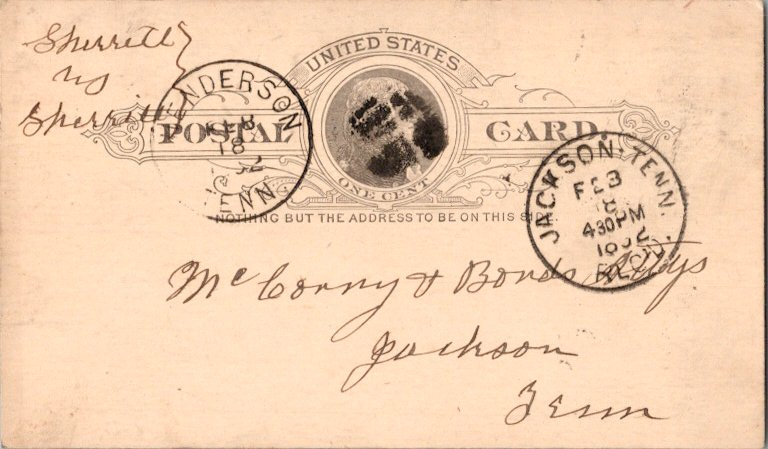 Sherrill
vs
Sherrill
UNITED STATES
POSTAL CARD.
ONE CENT
NOTHING BUT THE ADDRESS TO BE ON THIS SIDE
HENDERSON
FEB
18
TENN
JACKSON. TENN.
FEB
18
430PM
1892
REC'D.
Mc Corry & Bonds Attys
Jackson
Tenn